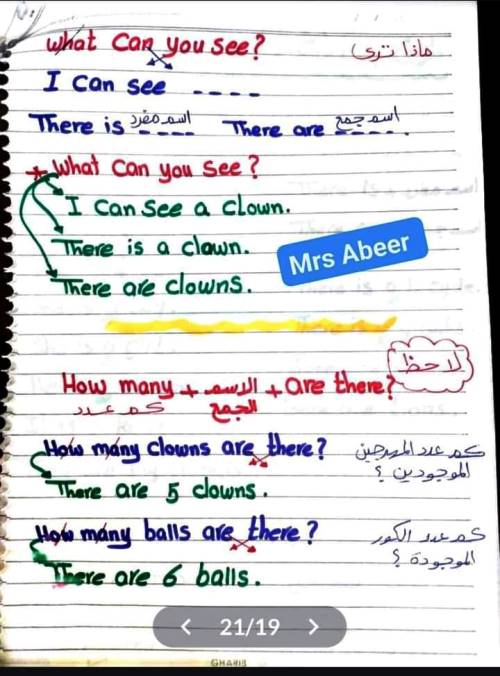 What Can you see? ماذا ترى
I Can see ----
There is اسم مفرد There are اسم جمع.
* What Can you see?
I Can see a clown.
There is a clown.
There are clowns.
Mrs Abeer
لاحظ
How many + الاسم + are there?
كم عدد الجمع
How many clowns are there? كم عدد المهرجين
الموجودين ؟
There are 5 clowns.
How many balls are there? كم عدد الكور
الموجودة ؟
There are 6 balls.
< 21/19 >
GHARIB